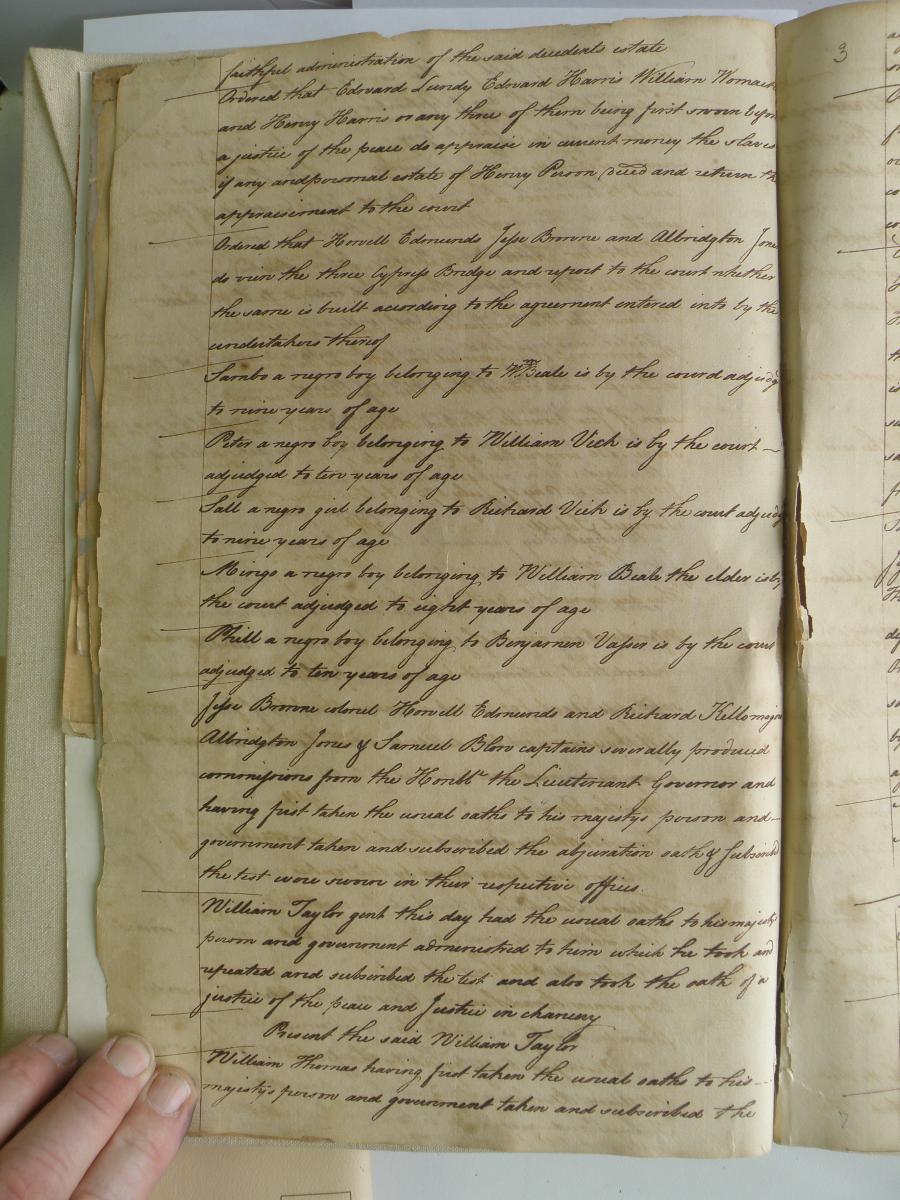 faithful administration of the said decedents estate
Ordered that Edward Lundy Edward Harris William Womack
and Henry Harris or any three of them being first sworn before
a justice of the peace do appraise in current money the slaves
if any and personal estate of Henry Person deced and return the
appraisement to the court
Ordered that Howell Edmunds Jesse Browne and Albridgton Jones
do view the three Cypress Bridge and report to the court whether
the same is built according to the agreement entered into by the
undertakers thereof
Sambo a negro boy belonging to Wm Beale is by the court adjudg
to nine years of age
Peter a negro boy belonging to William Vick is by the court
adjudged to ten years of age
Sall a negro girl belonging to Richard Vick is by the court adjudg
to nine years of age
Mingo a negro boy belonging to William Beale the elder is by
the court adjudged to eight years of age
Phill a negro boy belonging to Benjamen Vasser is by the court
adjudged to ten years of age
Jesse Browne colonel Howell Edmunds and Richard Kello major
Albridgton Jones & Samuel Blow captains severally produced
commissions from the Honble the Lieutenant Governor and
having first taken the usual oaths to his majestys person and
government taken and subscribed the abjuration oath & subscribd
the test were sworn in their respective offices
William Taylor gent this day had the usual oaths to his majestys
person and government administred to him which he took and
repeated and subscribed the test and also took the oath of a
justice of the peace and Justice in chancery
Present the said William Taylor
William Thomas having first taken the usual oaths to his
majestys person and government taken and subscribed the
3
7